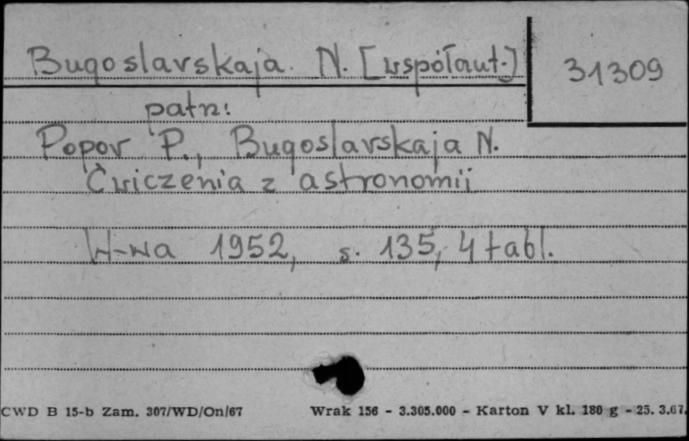 Bugoslavskaja N. [współaut.]
31309
patrz:
Popov P., Bugoslavskaja N.
Ćwiczenia z astronomii
W-wa 1952, s. 135, 4 tabl.
CWD B 15-b Zam. 307/WD/On/67 Wrak 156 - 3.305.000 - Karton V kl. 180 g - 25. 3.67.